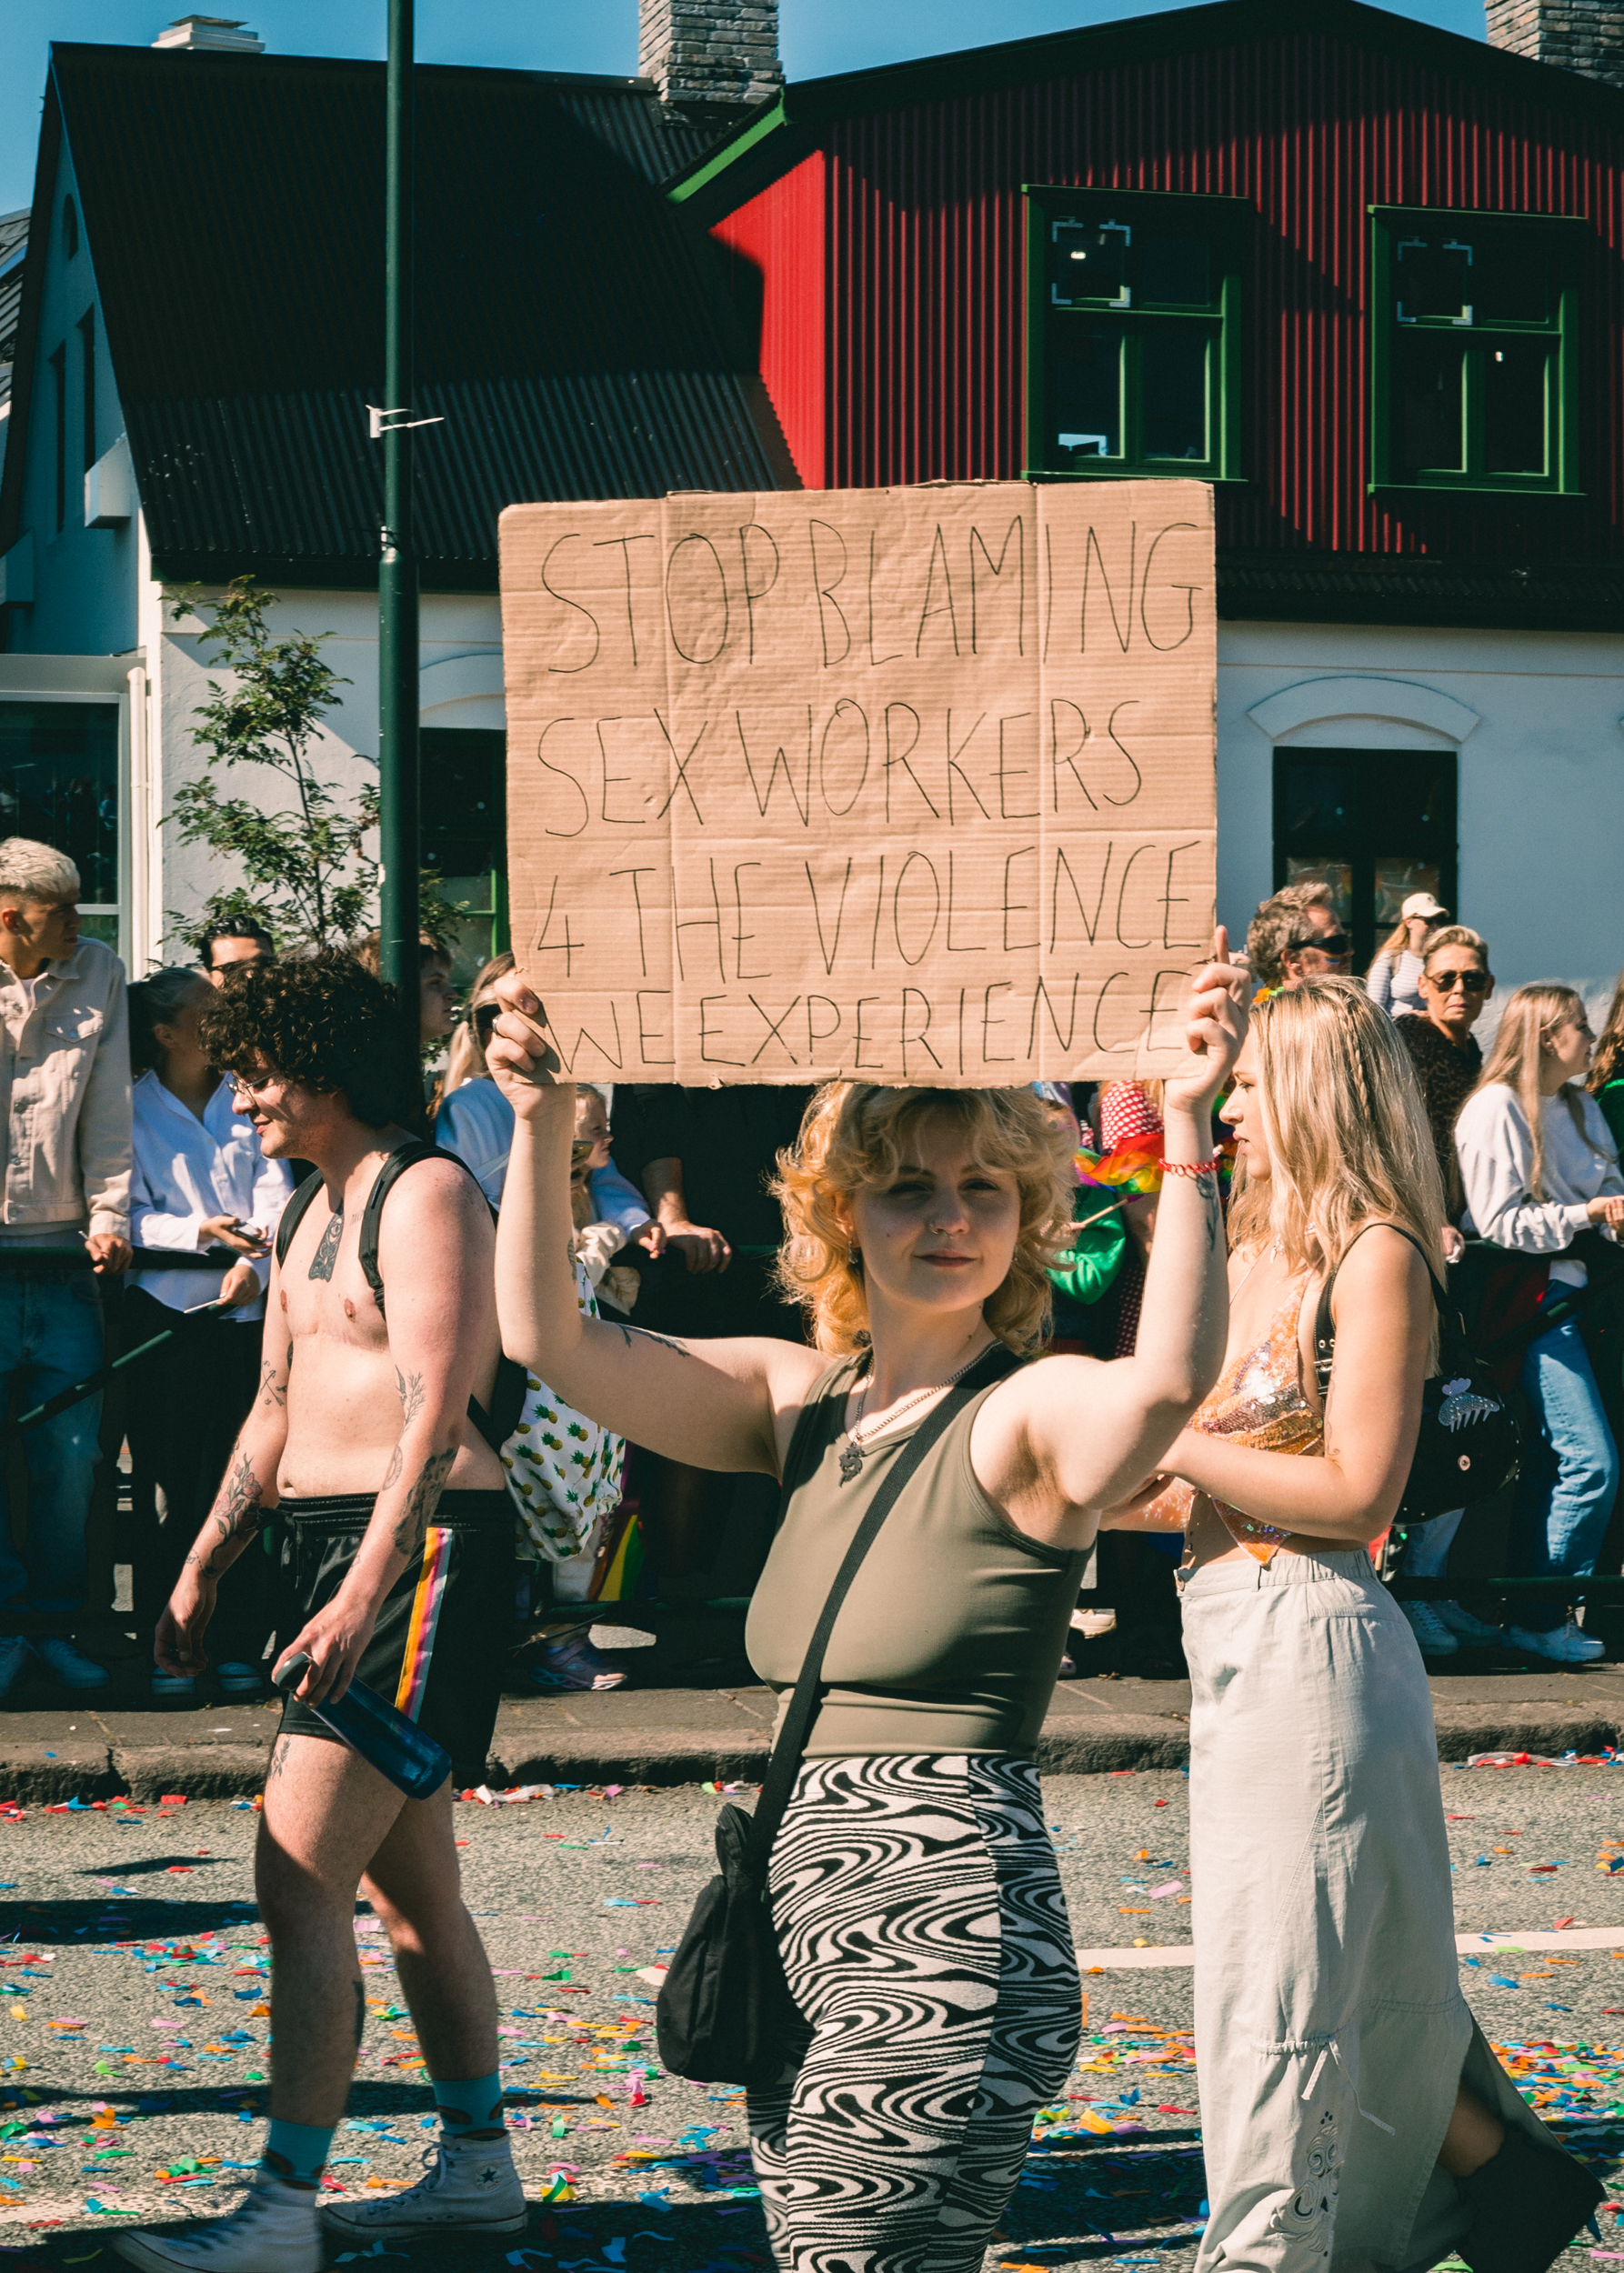 STOP BLAMING
SEX WORKERS
4 THE VIOLENCE
WE EXPERIENCE